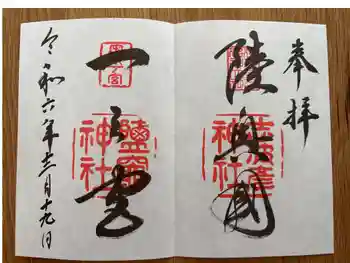 奉拝
陸奥國
志波彦
神社
一之宮
鹽竈
神社
令和六年十二月十九日